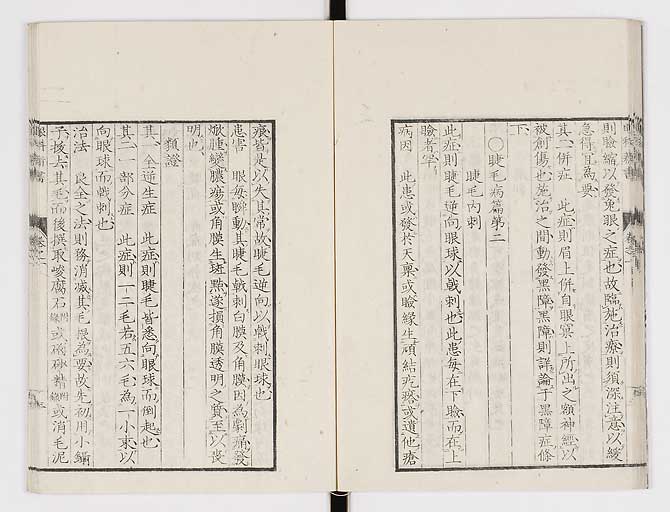 則瞼縮以發兔眼之症也故臨施治療則須深注意以緩
急得宜爲要
其二併症 此症則眉上併自眼窠上所出之額神經以
被創傷也施治之間動發黑障黑障則詳論于黑障症條
下
○睫毛病篇第二
睫毛內刺
此症則睫毛逆向眼球以戟刺也此患每在下瞼而在上
瞼者罕
病因 此患或發於天稟或瞼緣生頑結疙瘩或遺他瘡
痕皆是以失其常故睫毛逆向以戟刺眼球也
患害 眼每瞬動其睫毛戟刺白膜及角膜因爲劇痛發
焮腫變膿瘍或角膜生斑點遂損角膜透明之質至以喪
明也
類證
其一全逆生症 此症則睫毛皆悉向眼球而倒起也
其二一部分症 此症則一二毛若五六毛爲一小束以
向眼球而戟刺也
治法 良全之法則務消滅其毛根爲要故先初用小鑷
子拔去其毛而後撰取峻腐石或硇砂精或消毛泥
眼科新書 卷之二